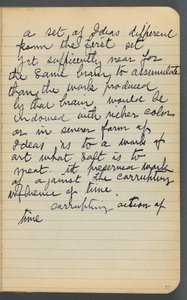 a set of Ideas different
from the first set
yet sufficiently near for
the same brain to assimilate
than the work produced
by that brain would be
endowed with richer color
or in severer form of
Ideas is to a work of
art what salt is to
meat. it preserves works
of against the corrupting
influence of time.
corrupting action of
time